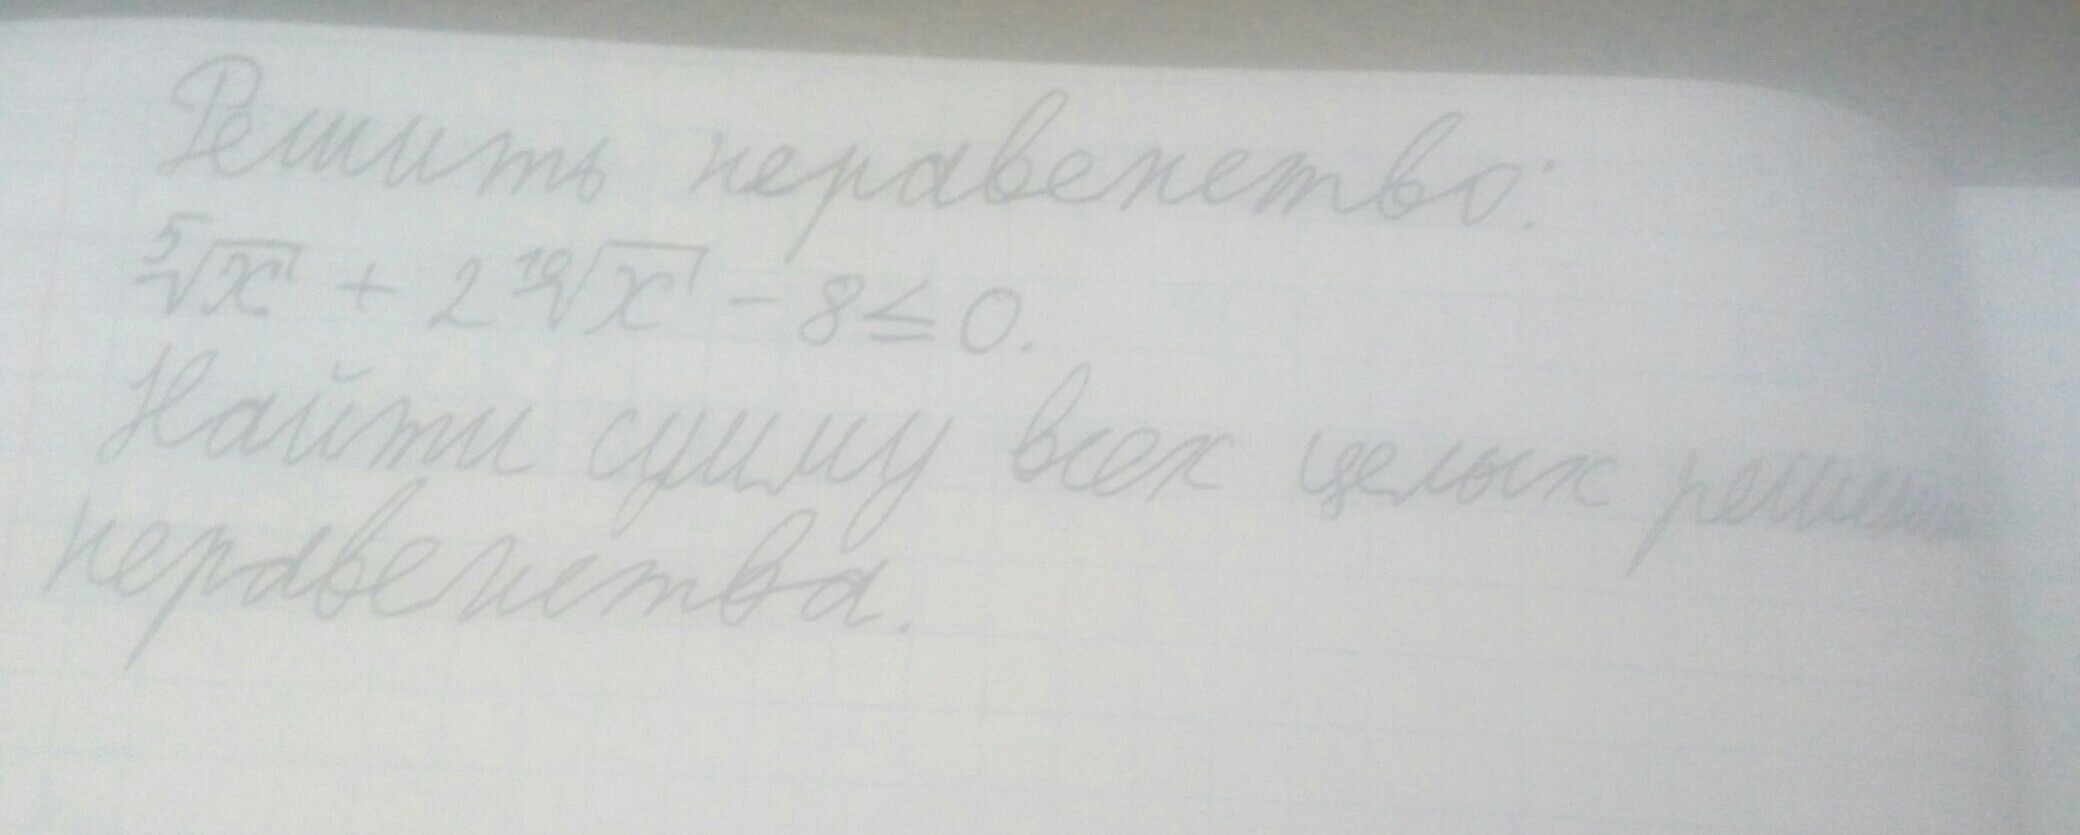 Решить неравенство:
⁵√x + 2 ¹⁰√x - 8 ≤ 0.
Найти сумму всех целых
неравенства.